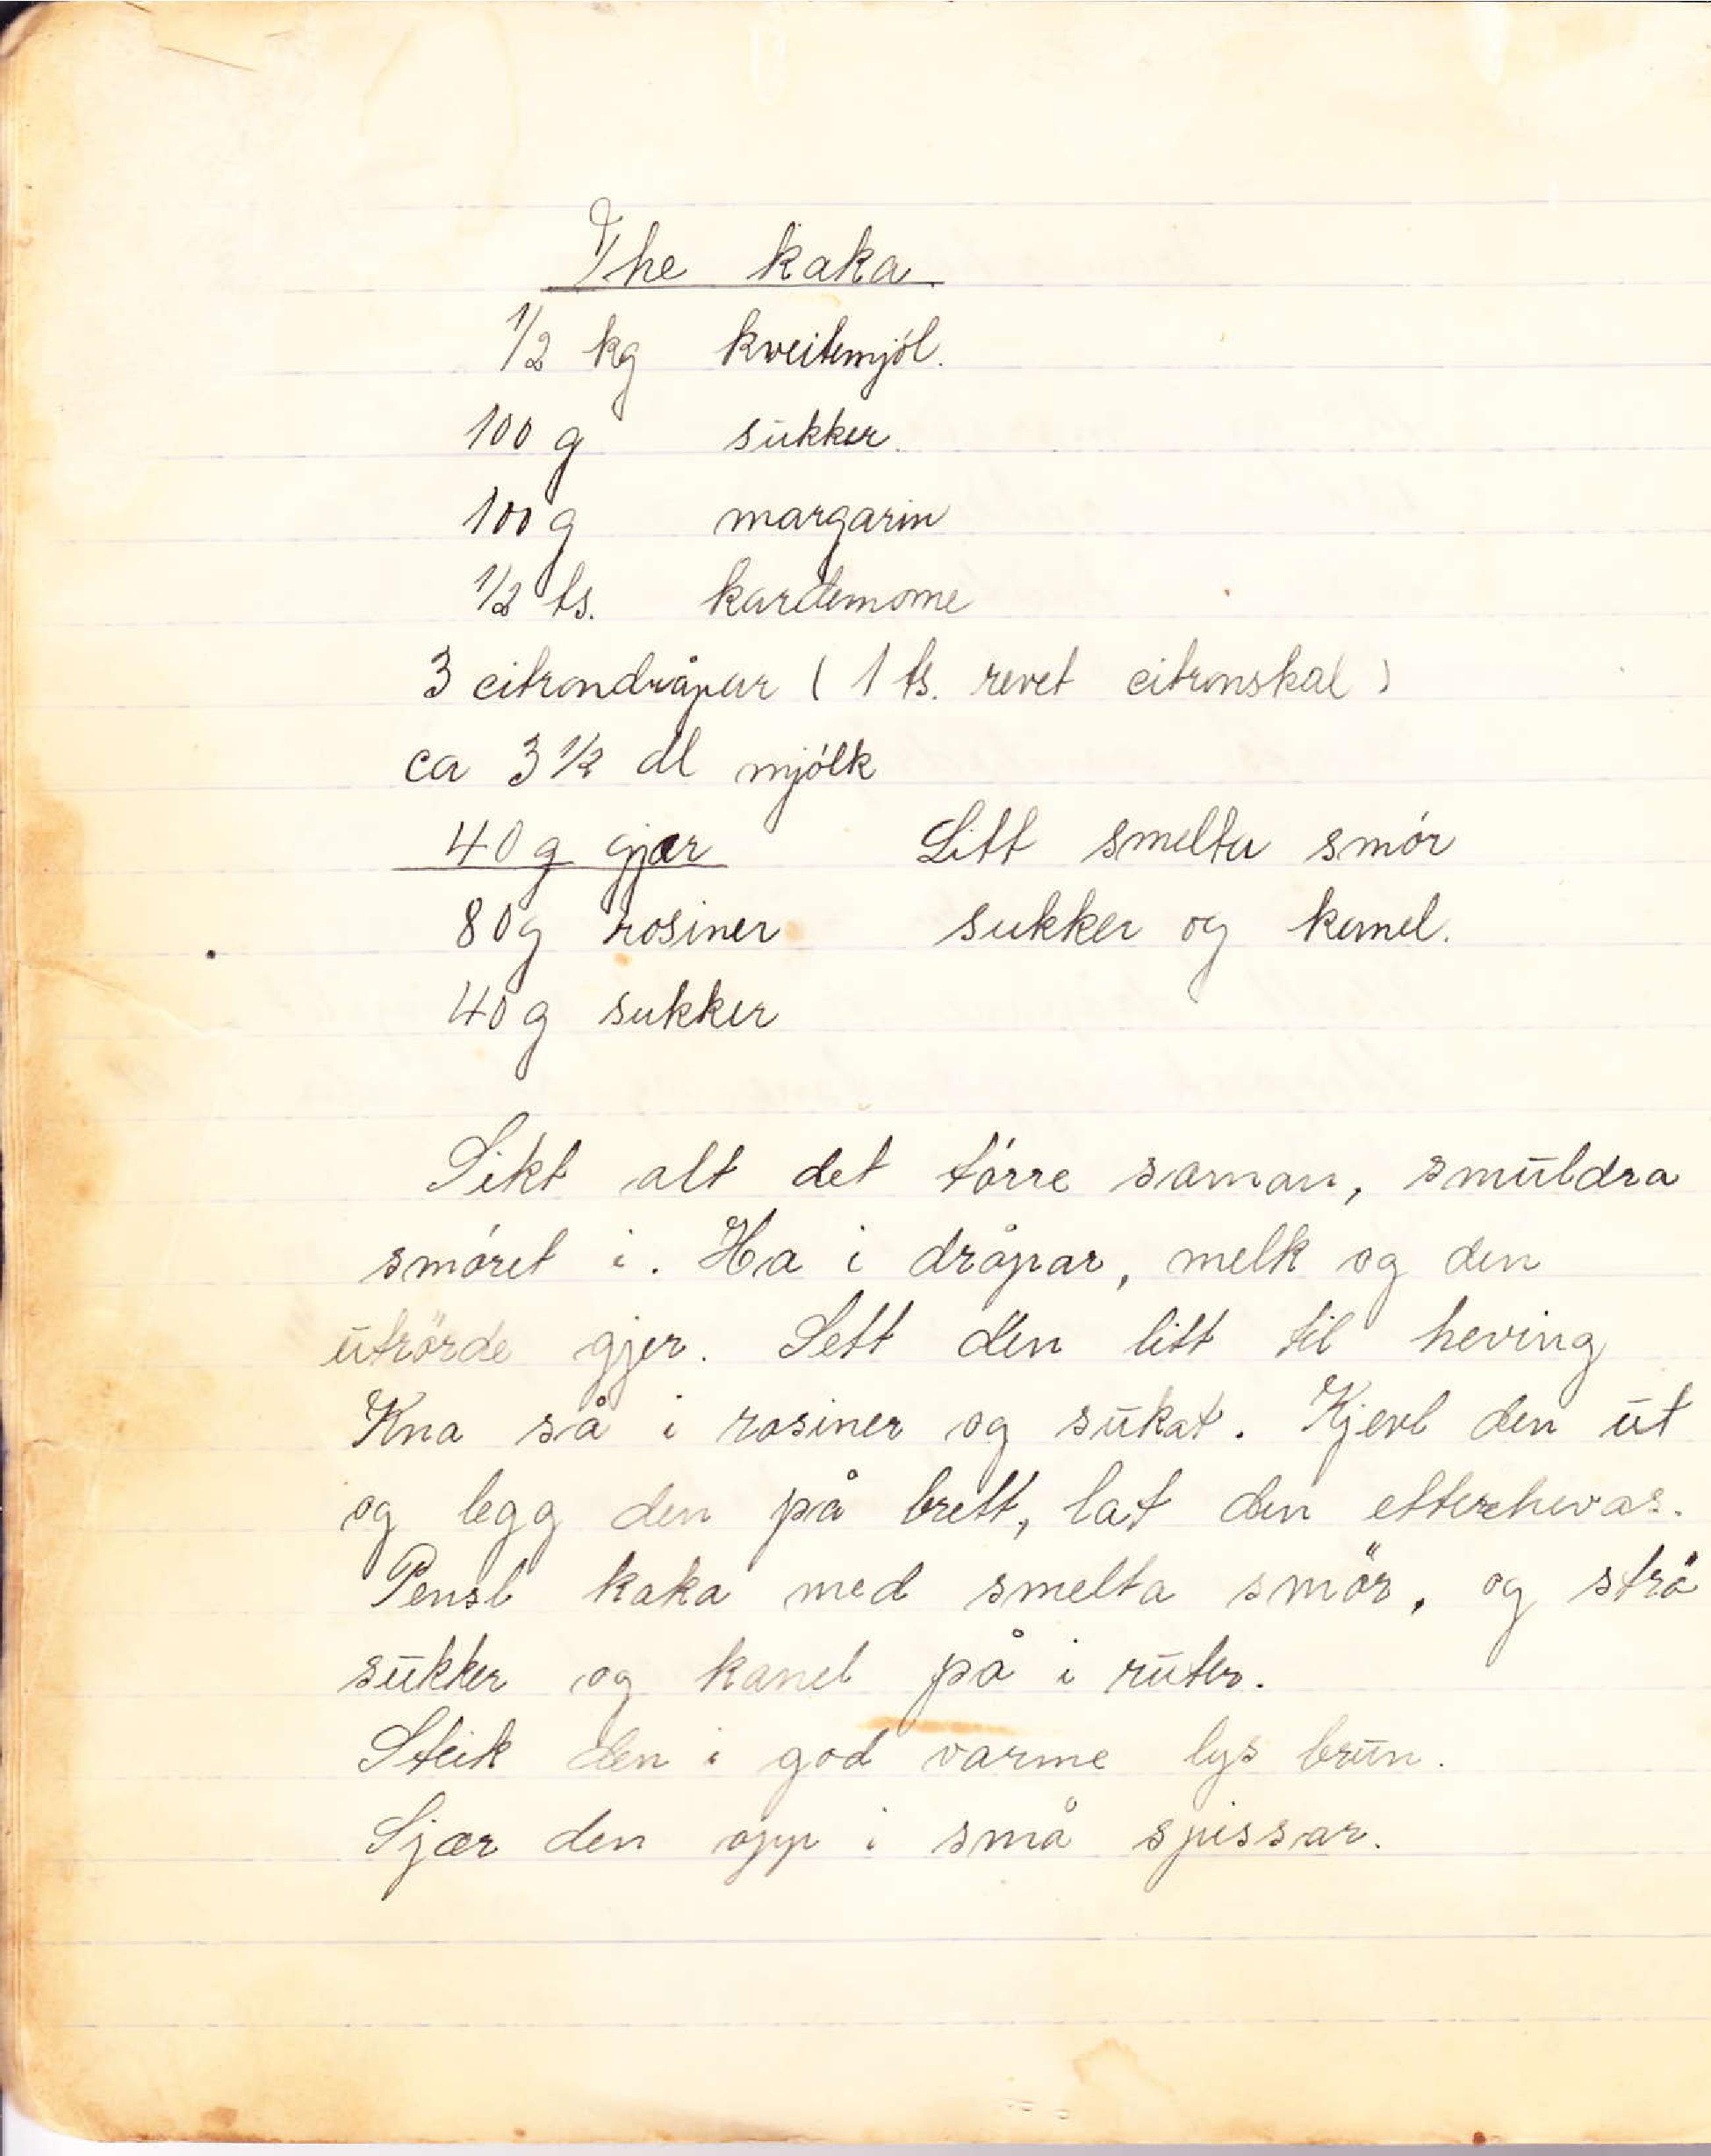 The kaka
1/2 kg kveitemjól.
100 g sukker.
100 g margarin
1/2 ts. kardemome
3 citrondråpar (1 ts. revet citronskal)
ca 3 1/2 dl mjólk
40 g gjær Litt smelta smór
80 g rosiner sukker og kanel.
40 g sukker
Sikt alt det tórre saman, smuldra
smóret i. Ha i dråpar, melk og den
utrörde gjer. Sett den litt til heving
Kna så i rosiner og sukat. Kjevl den ut
og legg den på brett, lat den etterhevas.
Pensl kaka med smelta smör, og strö
sukker og kanel på i ruter.
Steik den i god varme lys brun.
Sjær den opp i små spissar.